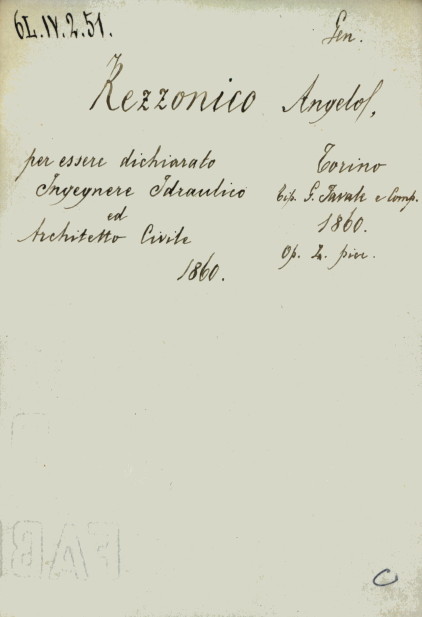 6L.IV.2.51.
Gen.
Rezzonico Angelo,
per essere dichiarato
Ingegnere Idraulico
ed
Architetto Civile
1860.
Torino
Tip. G. Favale e Comp.
1860.
Op. Z. picc.
C